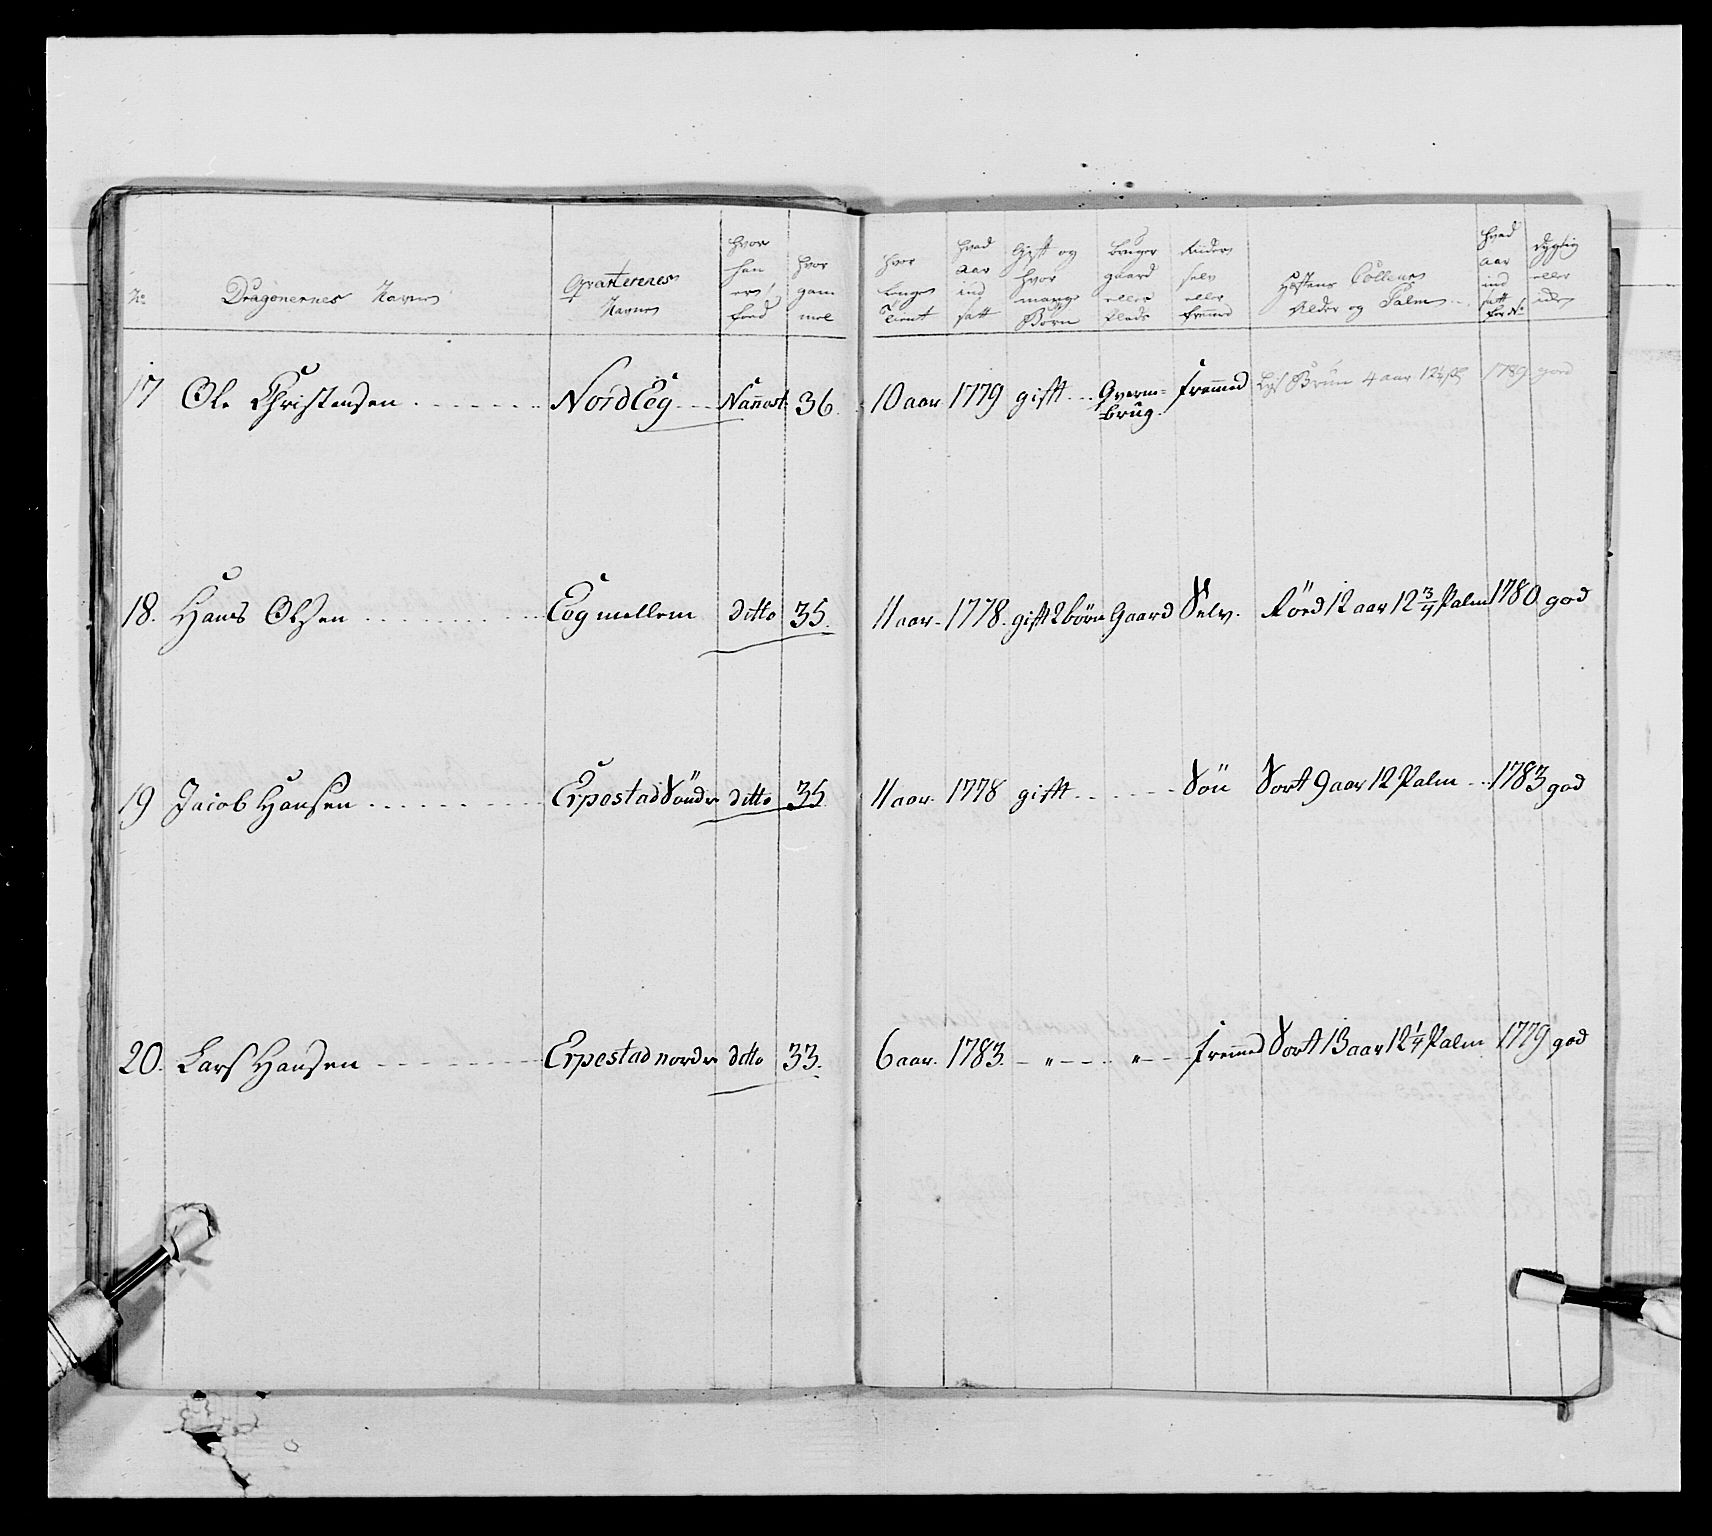 No
Dragonernes Navne
Qvarterenes
Navne
hvor
han
er
føed
hvor
gam
mel
hvor
Længe
Tient
hvad
aar
ind
satt
Gift og
hvor
mange
Børn
bruger
gaard
eller
Plads
Rüder
selv
eller
fremed
Hæstens Colleur
Alder og Palm
hvad
aar
ind
satt
for No
dygtig
eller
ickes
17 Ole Christensen Nord Eeg Nannest. 36. 10 aar 1779 gift Qvern= fremmed Lys Brun 4 aar 12½ Pl 1789 god
brug.
18. Hans Olsen Eeg mellem ditto 35. 11 aar. 1778. gift 2 börn Gaard Selv. Röed 12 aar 12 3/4 Palm 1780 god
19 Jacob Hansen Erpestad Söndr ditto 35 11 aar. 1778 gift Sön Sort 9 aar 12 Palm 1783 god
20. Lars Hansen Erpestad nordr ditto 33. 6 aar. 1783. " " fremmed Sort 13 aar 12 1/4 Palm 1779 god